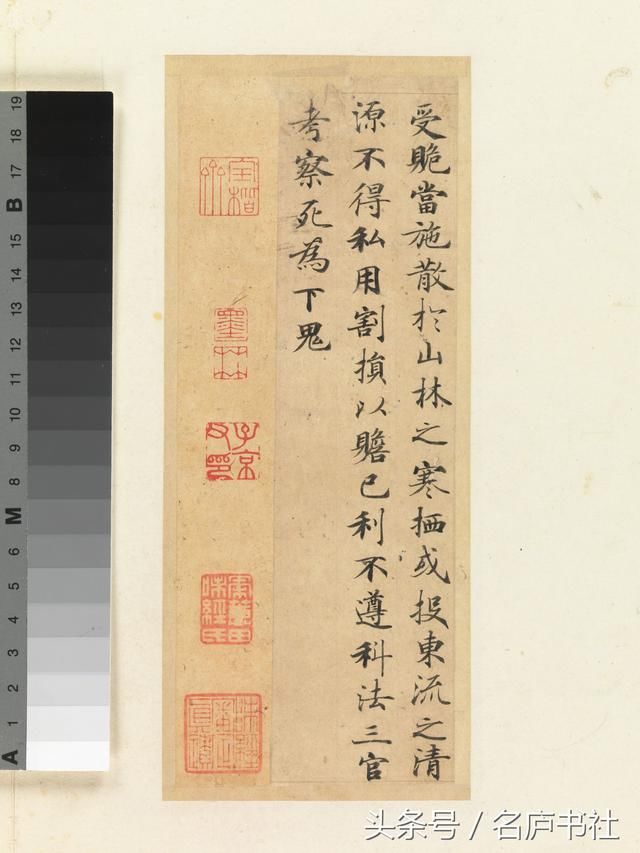 受賄當施散於山林之寒栖或投東流之清
源不得私用割損以贍己利不遵科法三官
考察死為下鬼
子京
父印
19
18
17
B
15
14
13
12
11
10
9
M
7
6
5
4
3
2
1
A
头条号／名庐书社